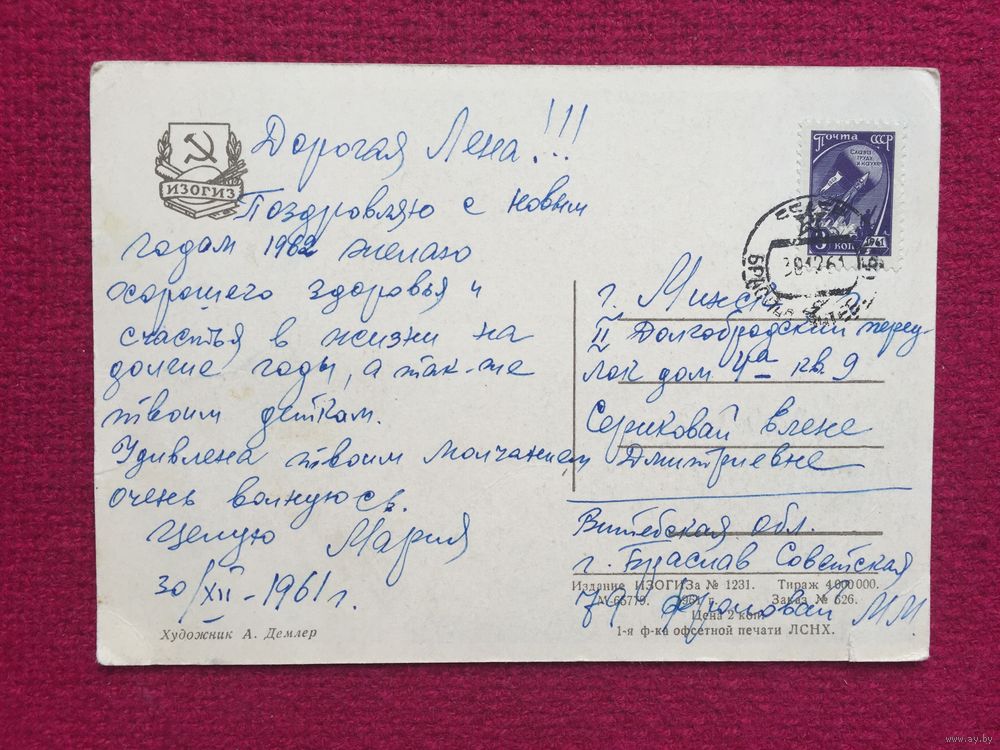 Дорогая Лена!!!
ИЗОГИЗ
Поздровляю с новым
годам 1962 желаю
хорошего здоровья и
счастья в жизни на
долгие годы, а так-же
твоим деткам.
Удивлена твоим молчанием
очень волнуюсь.
Целую Мария
30/XII-1961 г.
Художник А. Демлер
Почта СССР
Слава труду и науке
коп 1961
г. Минск
II Долгобродский переу-
лок дом 4а кв 9
Сериковай Елене
Дмитриевне
Витебская обл.
г. Браслав Советская
Издание ИЗОГИЗа № 1231. Тираж 4 000 000.
1961 г. Заказ № 626.
М.М.
Цена 2 коп.
1-я ф-ка офсетной печати ЛСНХ.
www.ay.by